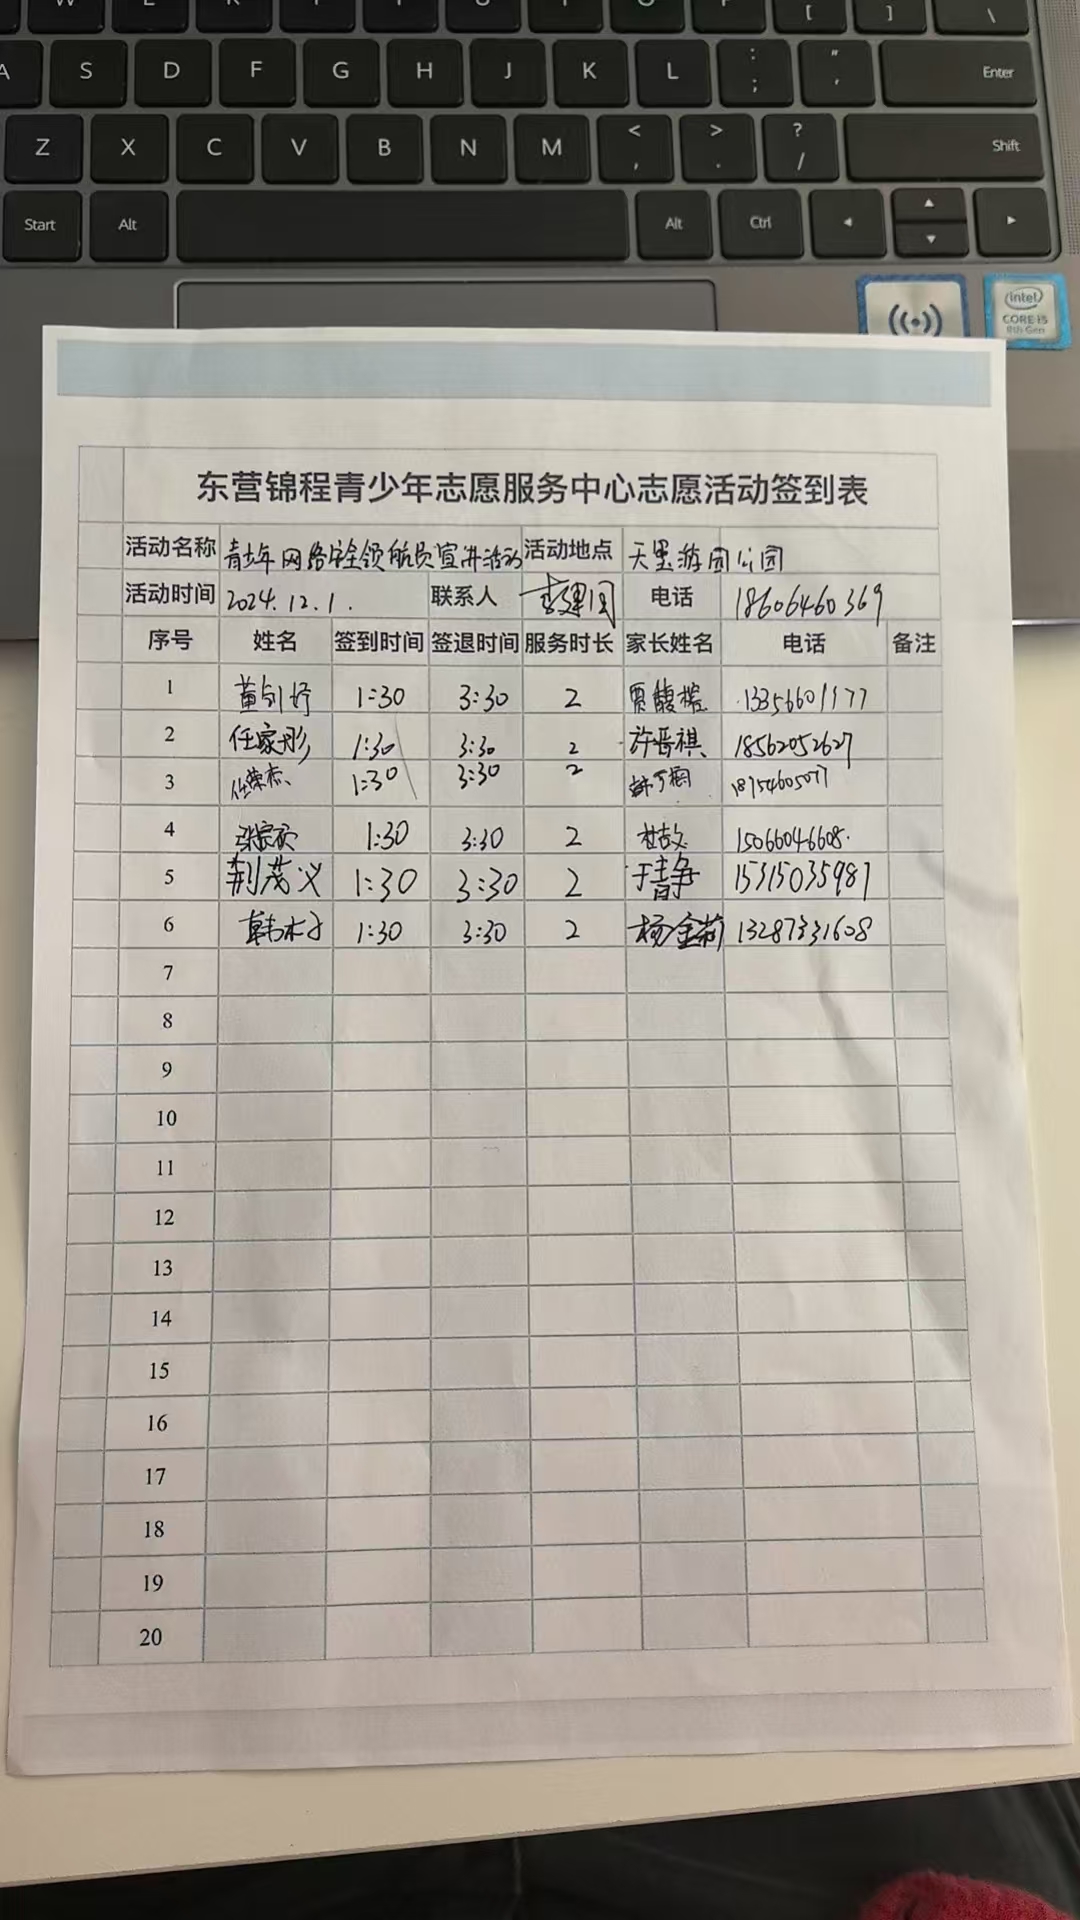 [ ] \
A S D F G H J K L : ; " , Enter
Z X C V B N M < , > . ? / Shift
Start Alt Alt Ctrl
intel
CORE i5
8th Gen
东营锦程青少年志愿服务中心志愿活动签到表
活动名称 青少年网络安全领航员宣讲活动 活动地点 天墨游园公园
活动时间 2024.12.1. 联系人 电话 18606460369
序号 姓名 签到时间 签退时间 服务时长 家长姓名 电话 备注
1 1:30 3:30 2 13356601177
2 任家彤 1:30 3:30 2 许晋祺 18562052627
3 任荣杰 1:30 3:30 2 18754605077
4 1:30 3:30 2 15066046608
5 荆茂义 1:30 3:30 2 于静 15315035987
6 韩木子 1:30 3:30 2 杨金莉 13287331608
7
8
9
10
11
12
13
14
15
16
17
18
19
20